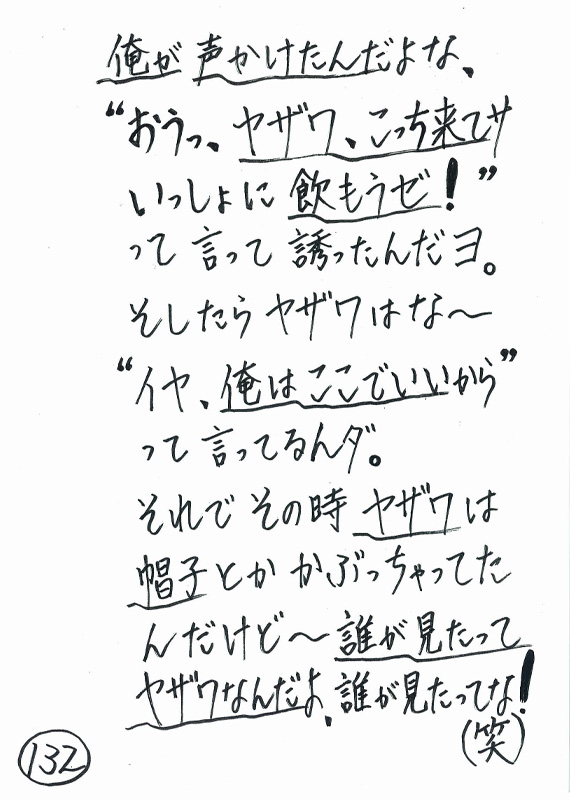 俺が声かけたんだよな、
“おうっ、ヤザワ、こっち来てサ
いっしょに飲もうゼ！”
って言って誘ったんだヨ。
そしたらヤザワはな〜
“イヤ、俺はここでいいから”
って言ってるんダ。
それでその時ヤザワは
帽子とかかぶっちゃってた
んだけど〜誰が見たって
ヤザワなんだよ、誰が見たってな！
(笑)
132